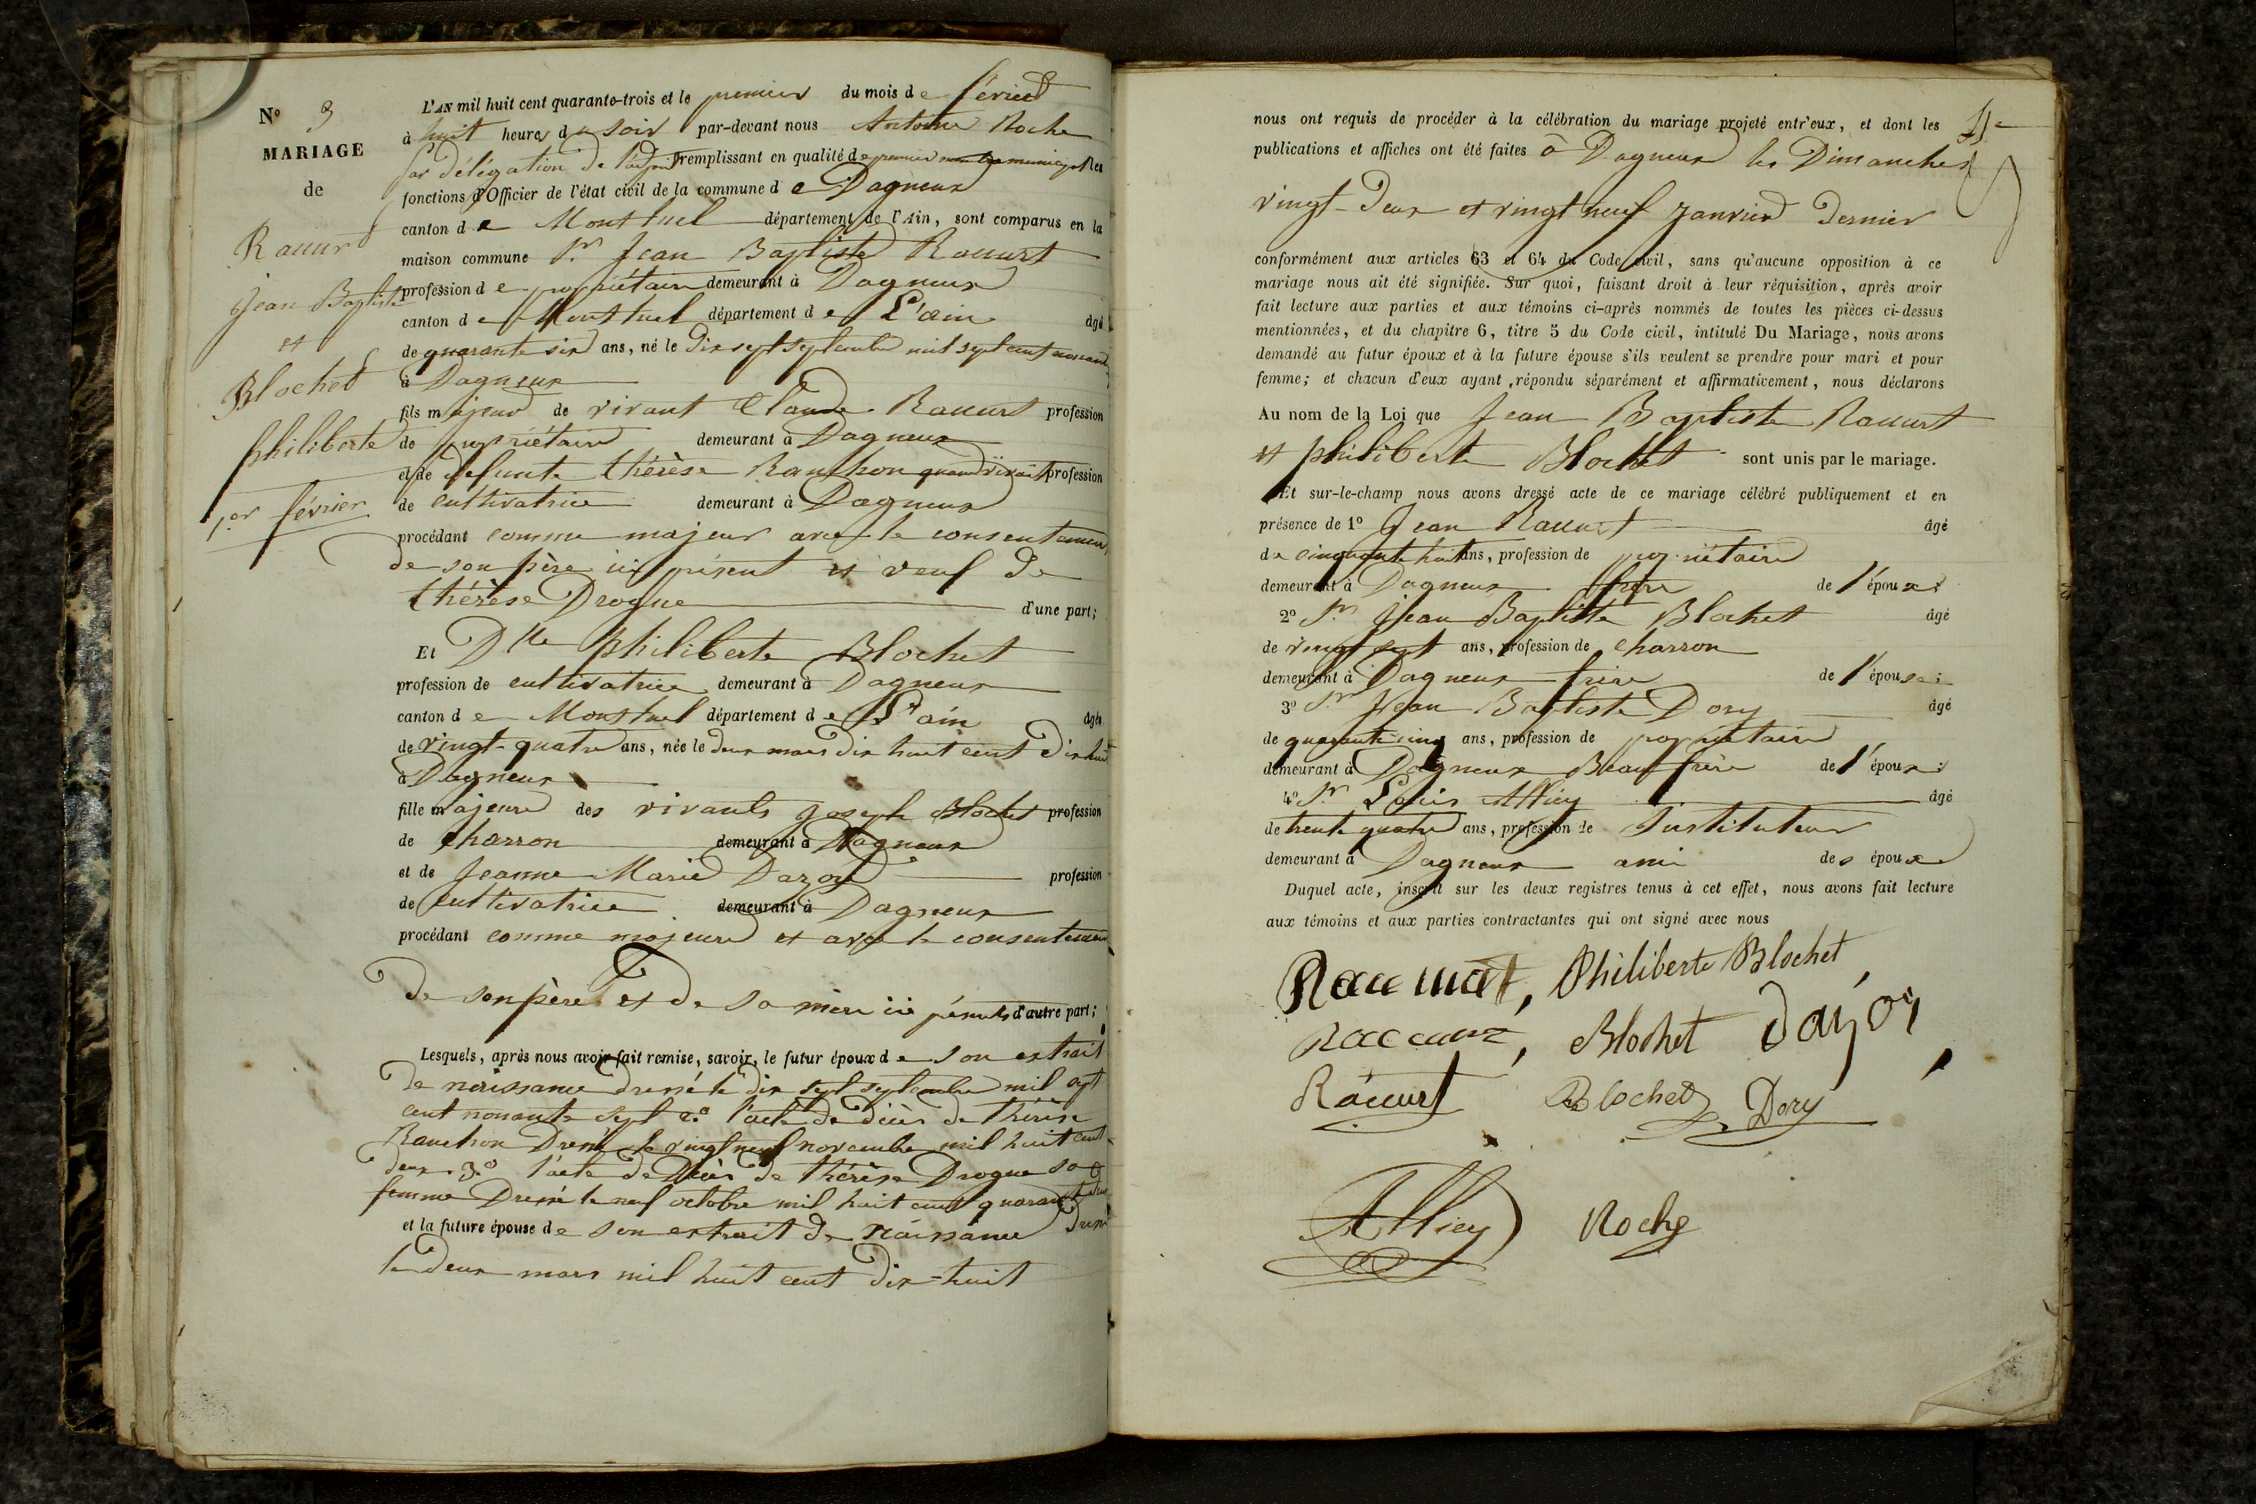 N° 3
MARIAGE
de
Racurt
Jean Baptiste
et
Blochet
philiberte
1.er février
L'AN mil huit cent quarante-trois et le premier du mois de février
à huit heures du soir par-devant nous Antoine Roche
par délégation de l'adjoint remplissant en qualité de premier les
fonctions d'Officier de l'état civil de la commune de Dagneux
canton de Montluel département de l'Ain, sont comparus en la
maison commune Sr Jean Baptiste Racurt
profession de propriétaire demeurant à Dagneux
canton de Montluel département de L'ain âgé
de quarante six ans, né le dix sept septembre mil sept cent
à Dagneux
fils majeur de vivant Claude Racurt profession
de propriétaire demeurant à Dagneux
et de defunte thérèse Ranchon quand vivait profession
de cultivatrice demeurant à Dagneux
procédant comme majeur avec le consentement
de son père ici présent et veuf de
thérèse Drogue d'une part;
Et Dlle philiberte Blochet
profession de cultivatrice demeurant à Dagneux
canton de Montluel département de L'ain âgée
de vingt-quatre ans, née le deux mars dix huit cent dix huit
à Dagneux
fille majeure des vivants joseph Blochet profession
de charron demeurant à Dagneux
et de Jeanne Marie Dazoy profession
de cultivatrice demeurant à Dagneux
procédant comme majeure et avec le consentement
de son père et de sa mère ici présents d'autre part;
Lesquels, après nous avoir fait remise, savoir, le futur époux de son extrait
de naissance dressé le dix sept septembre mil sept
cent nonante sept 2° l'acte de décès de thérèse
Ranchon dressé le vingt neuf novembre mil huit cent
deux 3° l'acte de décès de thérèse Drogue sa
femme dressé le neuf octobre mil huit cent quarante
et la future épouse de son extrait de naissance dressé
le deux mars mil huit cent dix-huit
nous ont requis de procéder à la célébration du mariage projeté entr'eux, et dont les
publications et affiches ont été faites à Dagneux les Dimanches
vingt-deux et vingt neuf janvier dernier
conformément aux articles 63 et 64 du Code civil, sans qu'aucune opposition à ce
mariage nous ait été signifiée. Sur quoi, faisant droit à leur réquisition, après avoir
fait lecture aux parties et aux témoins ci-après nommés de toutes les pièces ci-dessus
mentionnées, et du chapitre 6, titre 5 du Code civil, intitulé Du Mariage, nous avons
demandé au futur époux et à la future épouse s'ils veulent se prendre pour mari et pour
femme; et chacun d'eux ayant répondu séparément et affirmativement, nous déclarons
Au nom de la Loi que Jean Baptiste Racurt
et philiberte Blochet sont unis par le mariage.
Et sur-le-champ nous avons dressé acte de ce mariage célébré publiquement et en
présence de 1° Jean Racurt âgé
de cinquante huit ans, profession de propriétaire
demeurant à Dagneux frère de l'époux;
2° Sr Jean Baptiste Blochet âgé
de vingt sept ans, profession de charron
demeurant à Dagneux frère de l'épouse;
3° Sr Jean Baptiste Dory âgé
de quarante cinq ans, profession de propriétaire
demeurant à Dagneux Beau frère de l'époux;
4° Sr Louis Alliey âgé
de trente quatre ans, profession de Instituteur
demeurant à Dagneux ami des époux
Duquel acte, inscrit sur les deux registres tenus à cet effet, nous avons fait lecture
aux témoins et aux parties contractantes qui ont signé avec nous
Philiberte Blochet
Blochet
Racurt Blochet Dory
Alliey Roche